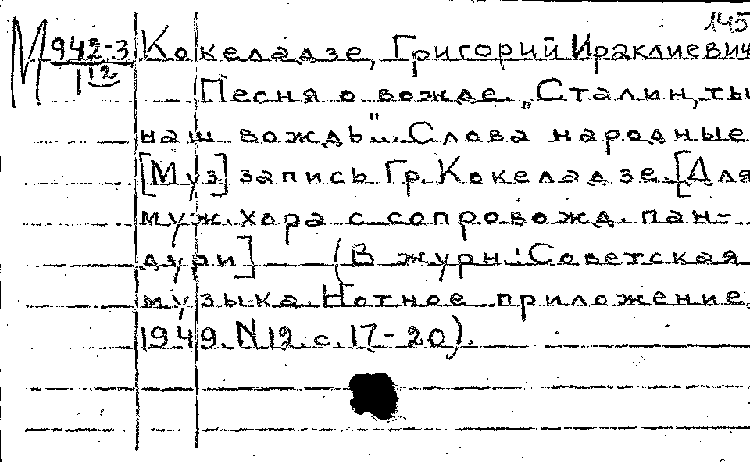 145
М 942-3 Кокеладзе, Григорий Ираклиевич
12 Песня о вожде. „Сталин, ты
наш вождь". Слова народные
[Муз] запись Гр. Кокеладзе. [Для
муж. хора с сопровожд. пан-
дури] (В журн: Советская
музыка Нотное приложение
1949. N12. с. 17-20).